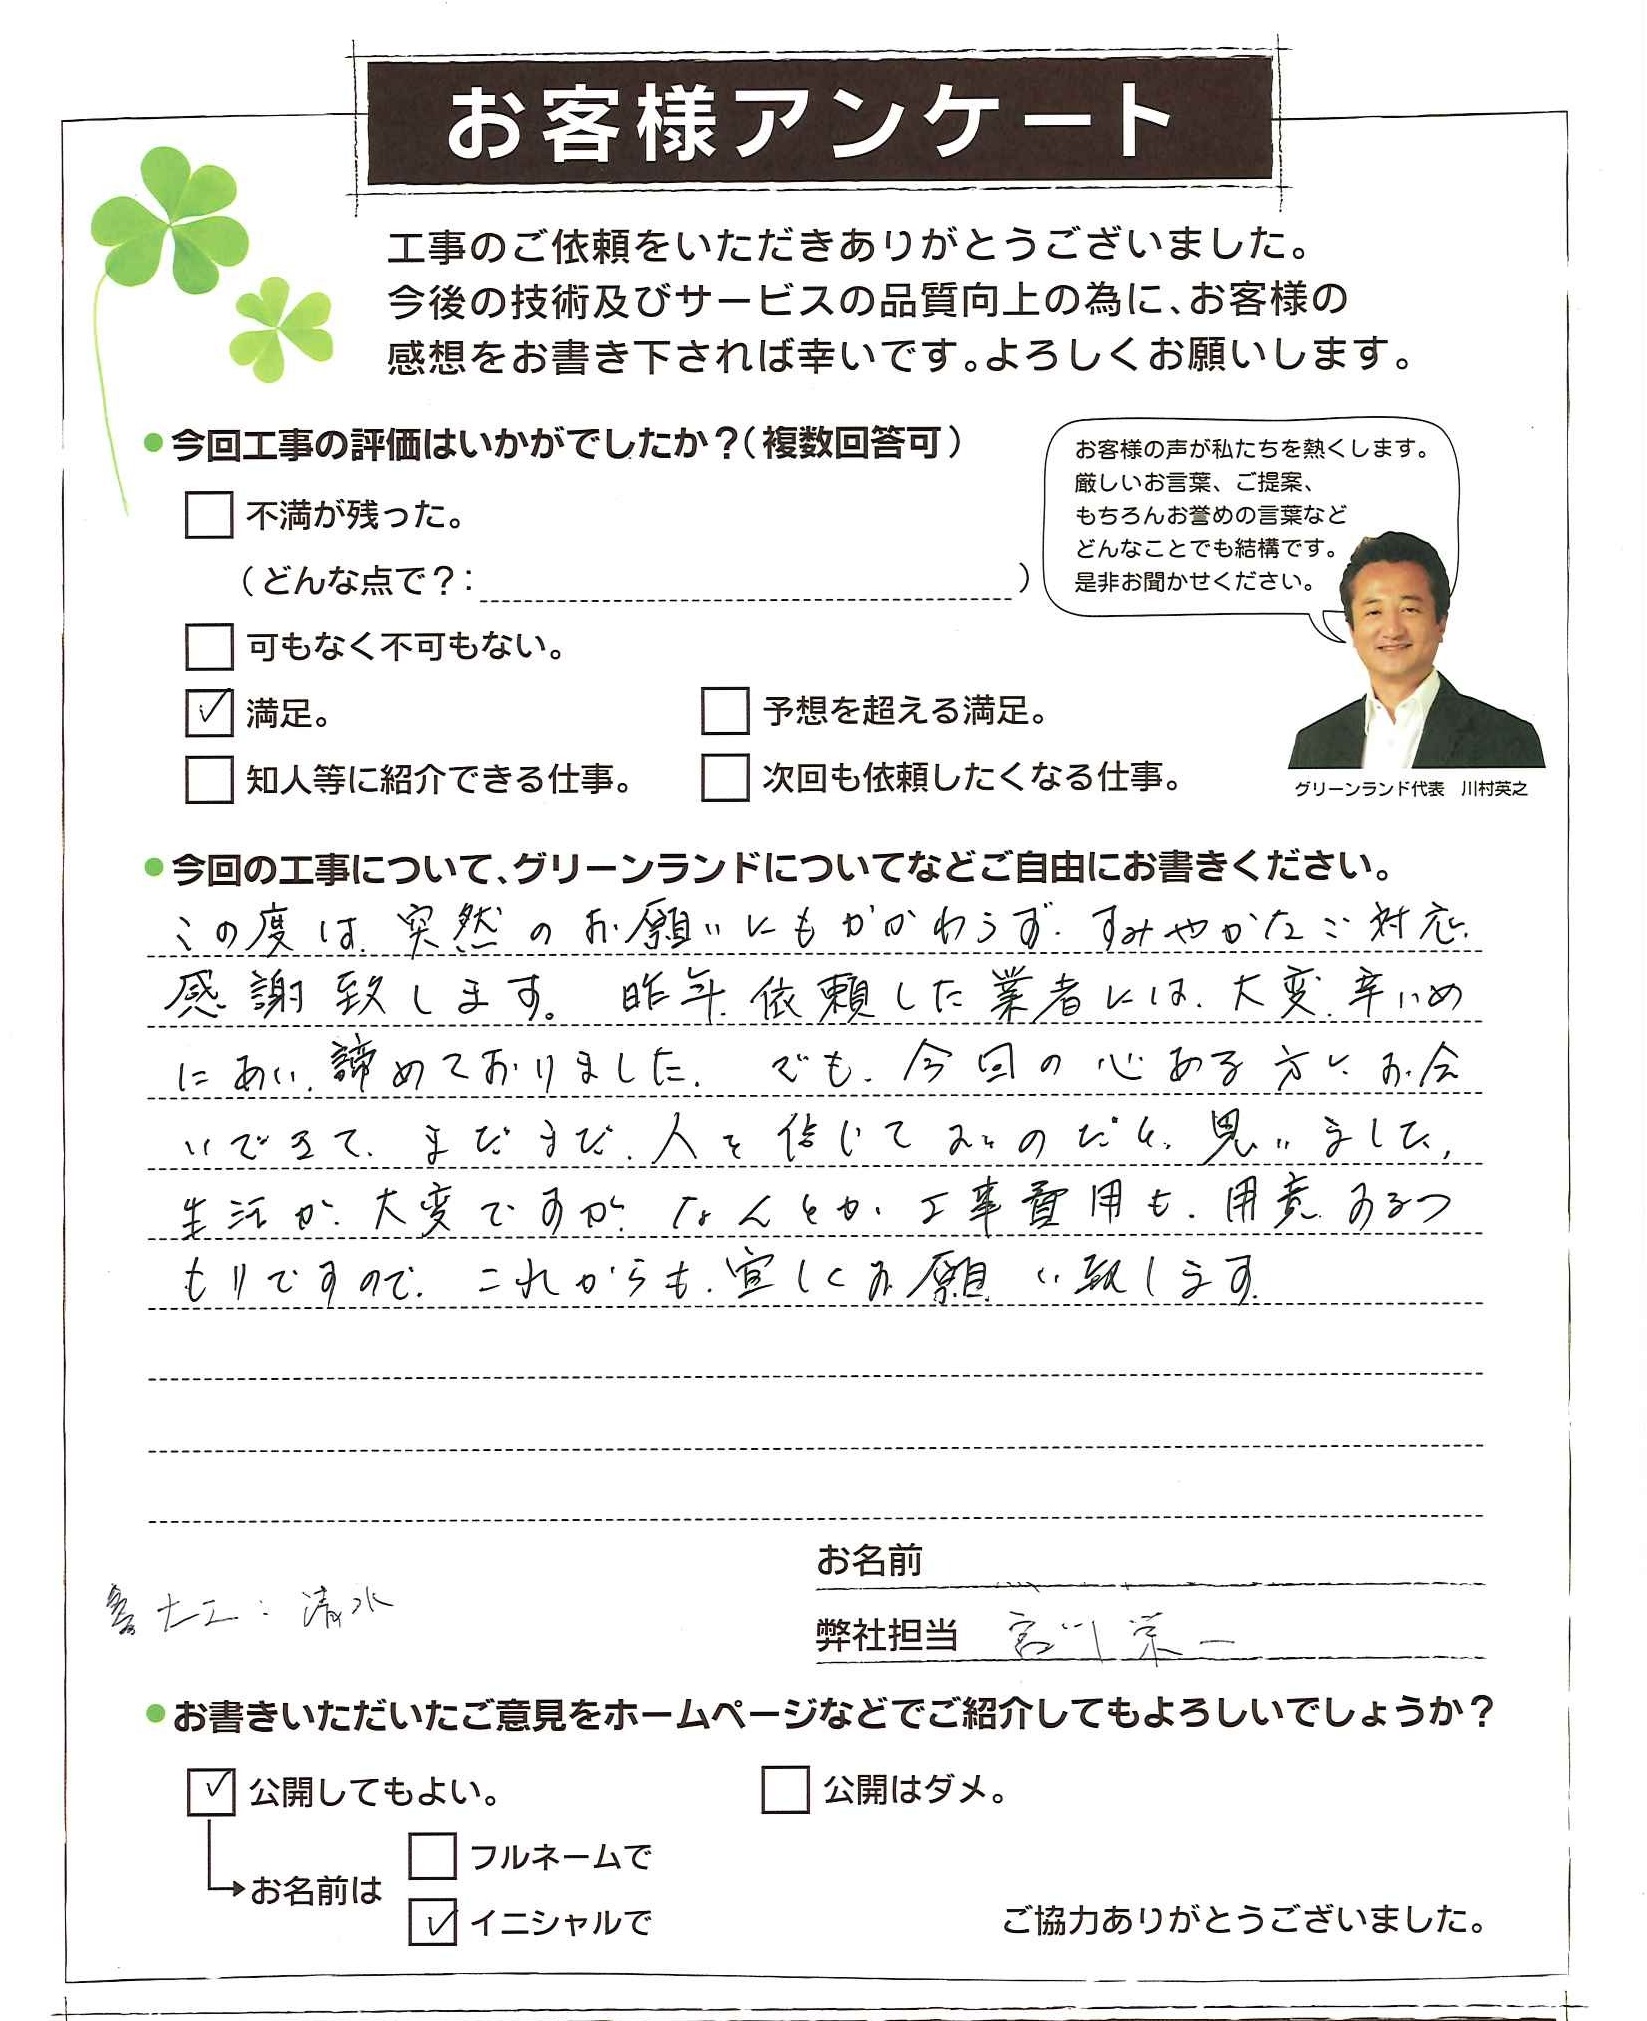 お客様アンケート
工事のご依頼をいただきありがとうございました。
今後の技術及びサービスの品質向上の為に、お客様の
感想をお書き下されば幸いです。よろしくお願いします。
●今回工事の評価はいかがでしたか？（複数回答可）
不満が残った。
（どんな点で？：　）
可もなく不可もない。
満足。
予想を超える満足。
知人等に紹介できる仕事。
次回も依頼したくなる仕事。
お客様の声が私たちを熱くします。
厳しいお言葉、ご提案、
もちろんお誉めの言葉など
どんなことでも結構です。
是非お聞かせください。
グリーンランド代表　川村英之
●今回の工事について、グリーンランドについてなどご自由にお書きください。
この度は、突然のお願いにもかかわらず、すみやかなご対応、
感謝致します。 昨年、依頼した業者には、大変、辛いめ
にあい、諦めておりました。 でも、今回の心ある方とお会
いできて、まだまだ、人を信じてよいのだと、思いました。
生活が、大変ですが、なんとか、工事費用も、用意するつ
もりですので、これからも、宜しくお願い致します。
お名前
大工：清水
弊社担当 宮川 栄一
●お書きいただいたご意見をホームページなどでご紹介してもよろしいでしょうか？
公開してもよい。
公開はダメ。
お名前は
フルネームで
イニシャルで
ご協力ありがとうございました。